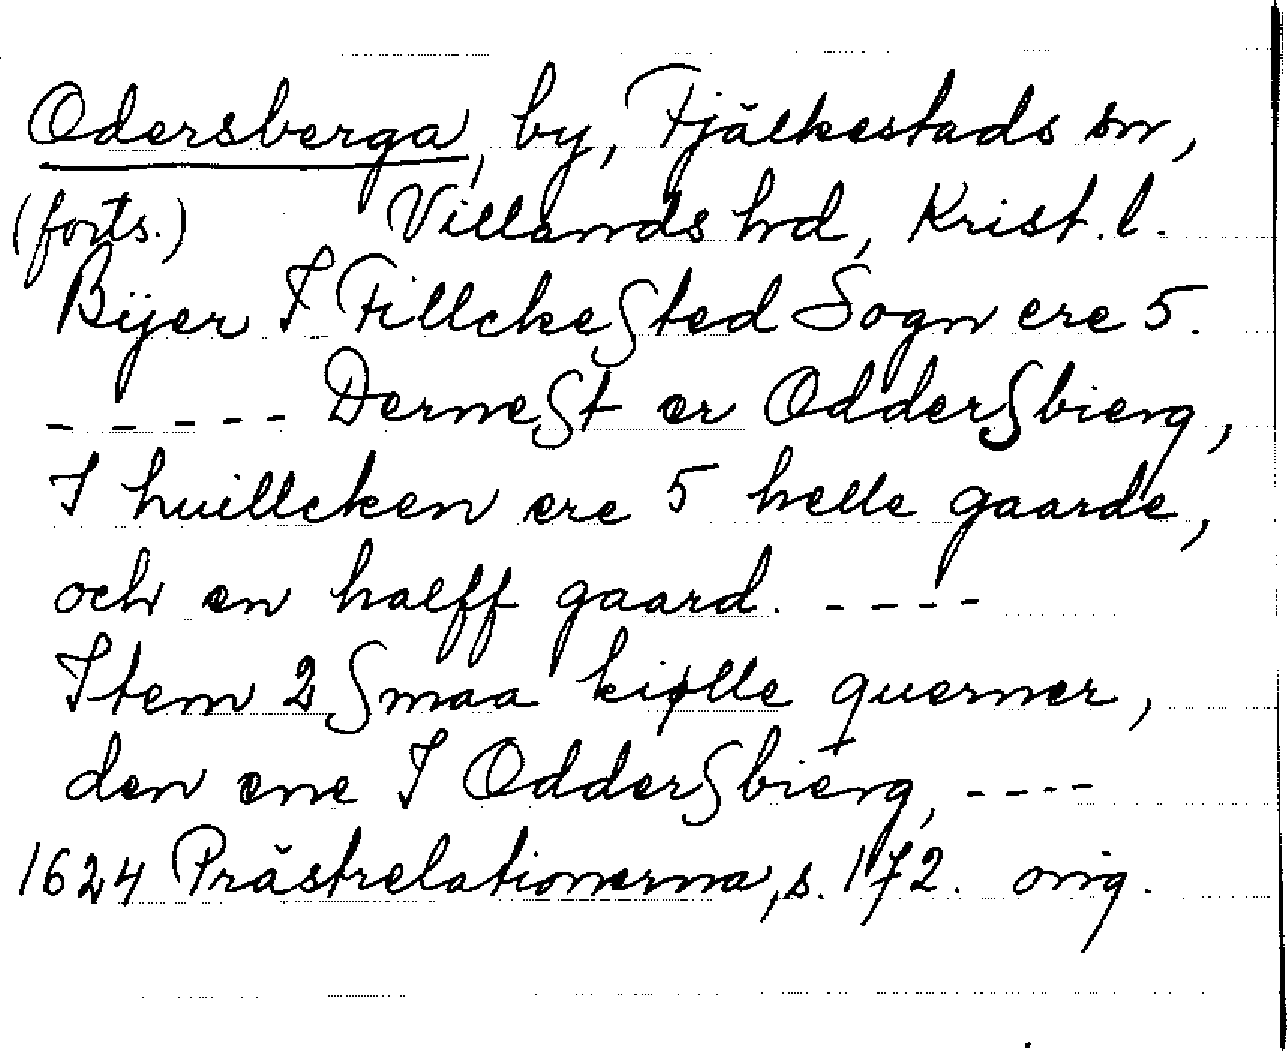 Odersberga, by, Fjälkestads sn,
(forts.) Villands hd, Krist. l.
Bÿer I Fillckeſted Sogn ere 5.
- - - - - Derneſt er Odderſbierg,
I huillcken ere 5 helle gaarde,
och en halff gaard. - - - -
Item 2 ſmaa kiølle querner,
den ene I Odderſbierg, - - - -
1624 Prästrelationerna, s. 172. orig.